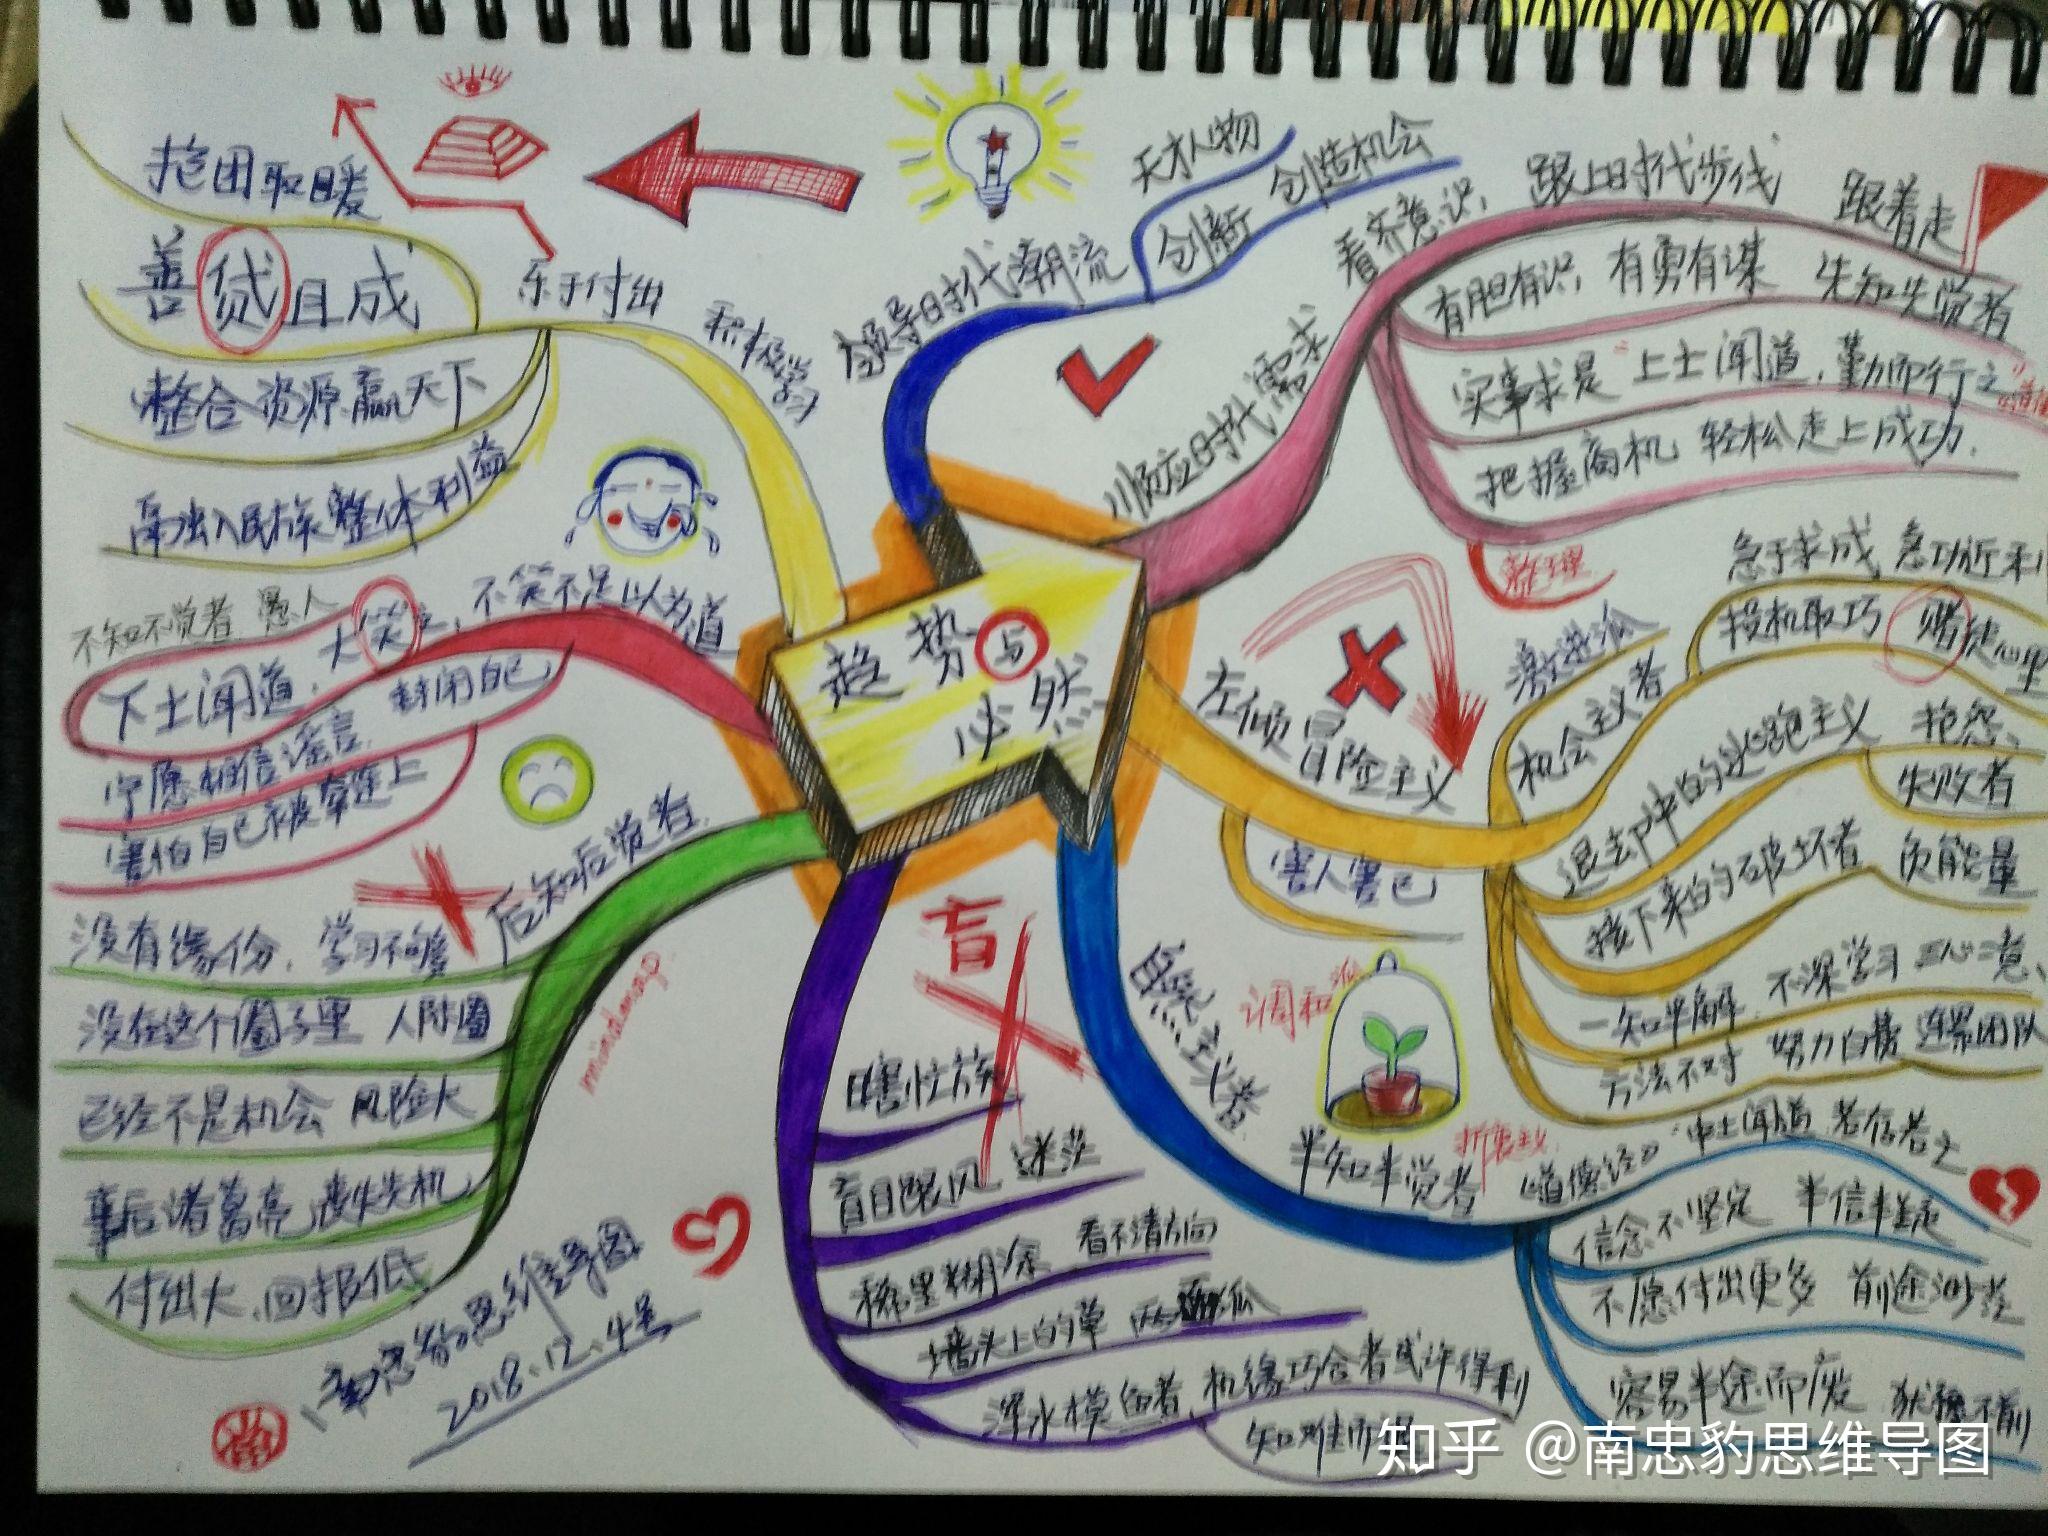 趋势与
必然
领导时代潮流
创新
天才人物
创造机会
顺应时代需求
看齐意识,
跟上时代步伐
跟着走
有胆有识,有勇有谋 先知先觉者
实事求是 "上士闻道,勤而行之"
把握商机 轻松走上成功.
左倾冒险主义
害人害己
激进派
机会主义者
急于求成 急功近利
投机取巧 赌徒心理
退却中的逃跑主义
抱怨、
失败者
接下来的破坏者 负能量
一知半解 不深学习 三心二意、
方法不对 努力白费 连累团队
自然主义者
调和派
半知半觉者
折衷主义
《道德经》"中士闻道 若存若亡
信念不坚定 半信半疑
不愿付出更多 前途渺茫
容易半途而废
盲
盲目跟风 迷茫
稀里糊涂 看不清方向
墙头上的草
浑水摸鱼者 机缘巧合者或许得利
知难而退
后知后觉者
没有缘份、学习不够
没在这个圈子里 人际圈
已经不是机会 风险大
事后诸葛亮 丧失先机
付出大、回报低
mindmap
不笑不足以为道
下士闻道,大笑之,
不知不觉者 愚人
封闭自己
宁愿相信谣言
害怕自己被牵连上
积极学习
乐于付出
抱团取暖
善贷且成
整合资源赢天下
民族整体利益
南忠豹思维导图
2018.12.4号
南
知乎 @南忠豹思维导图